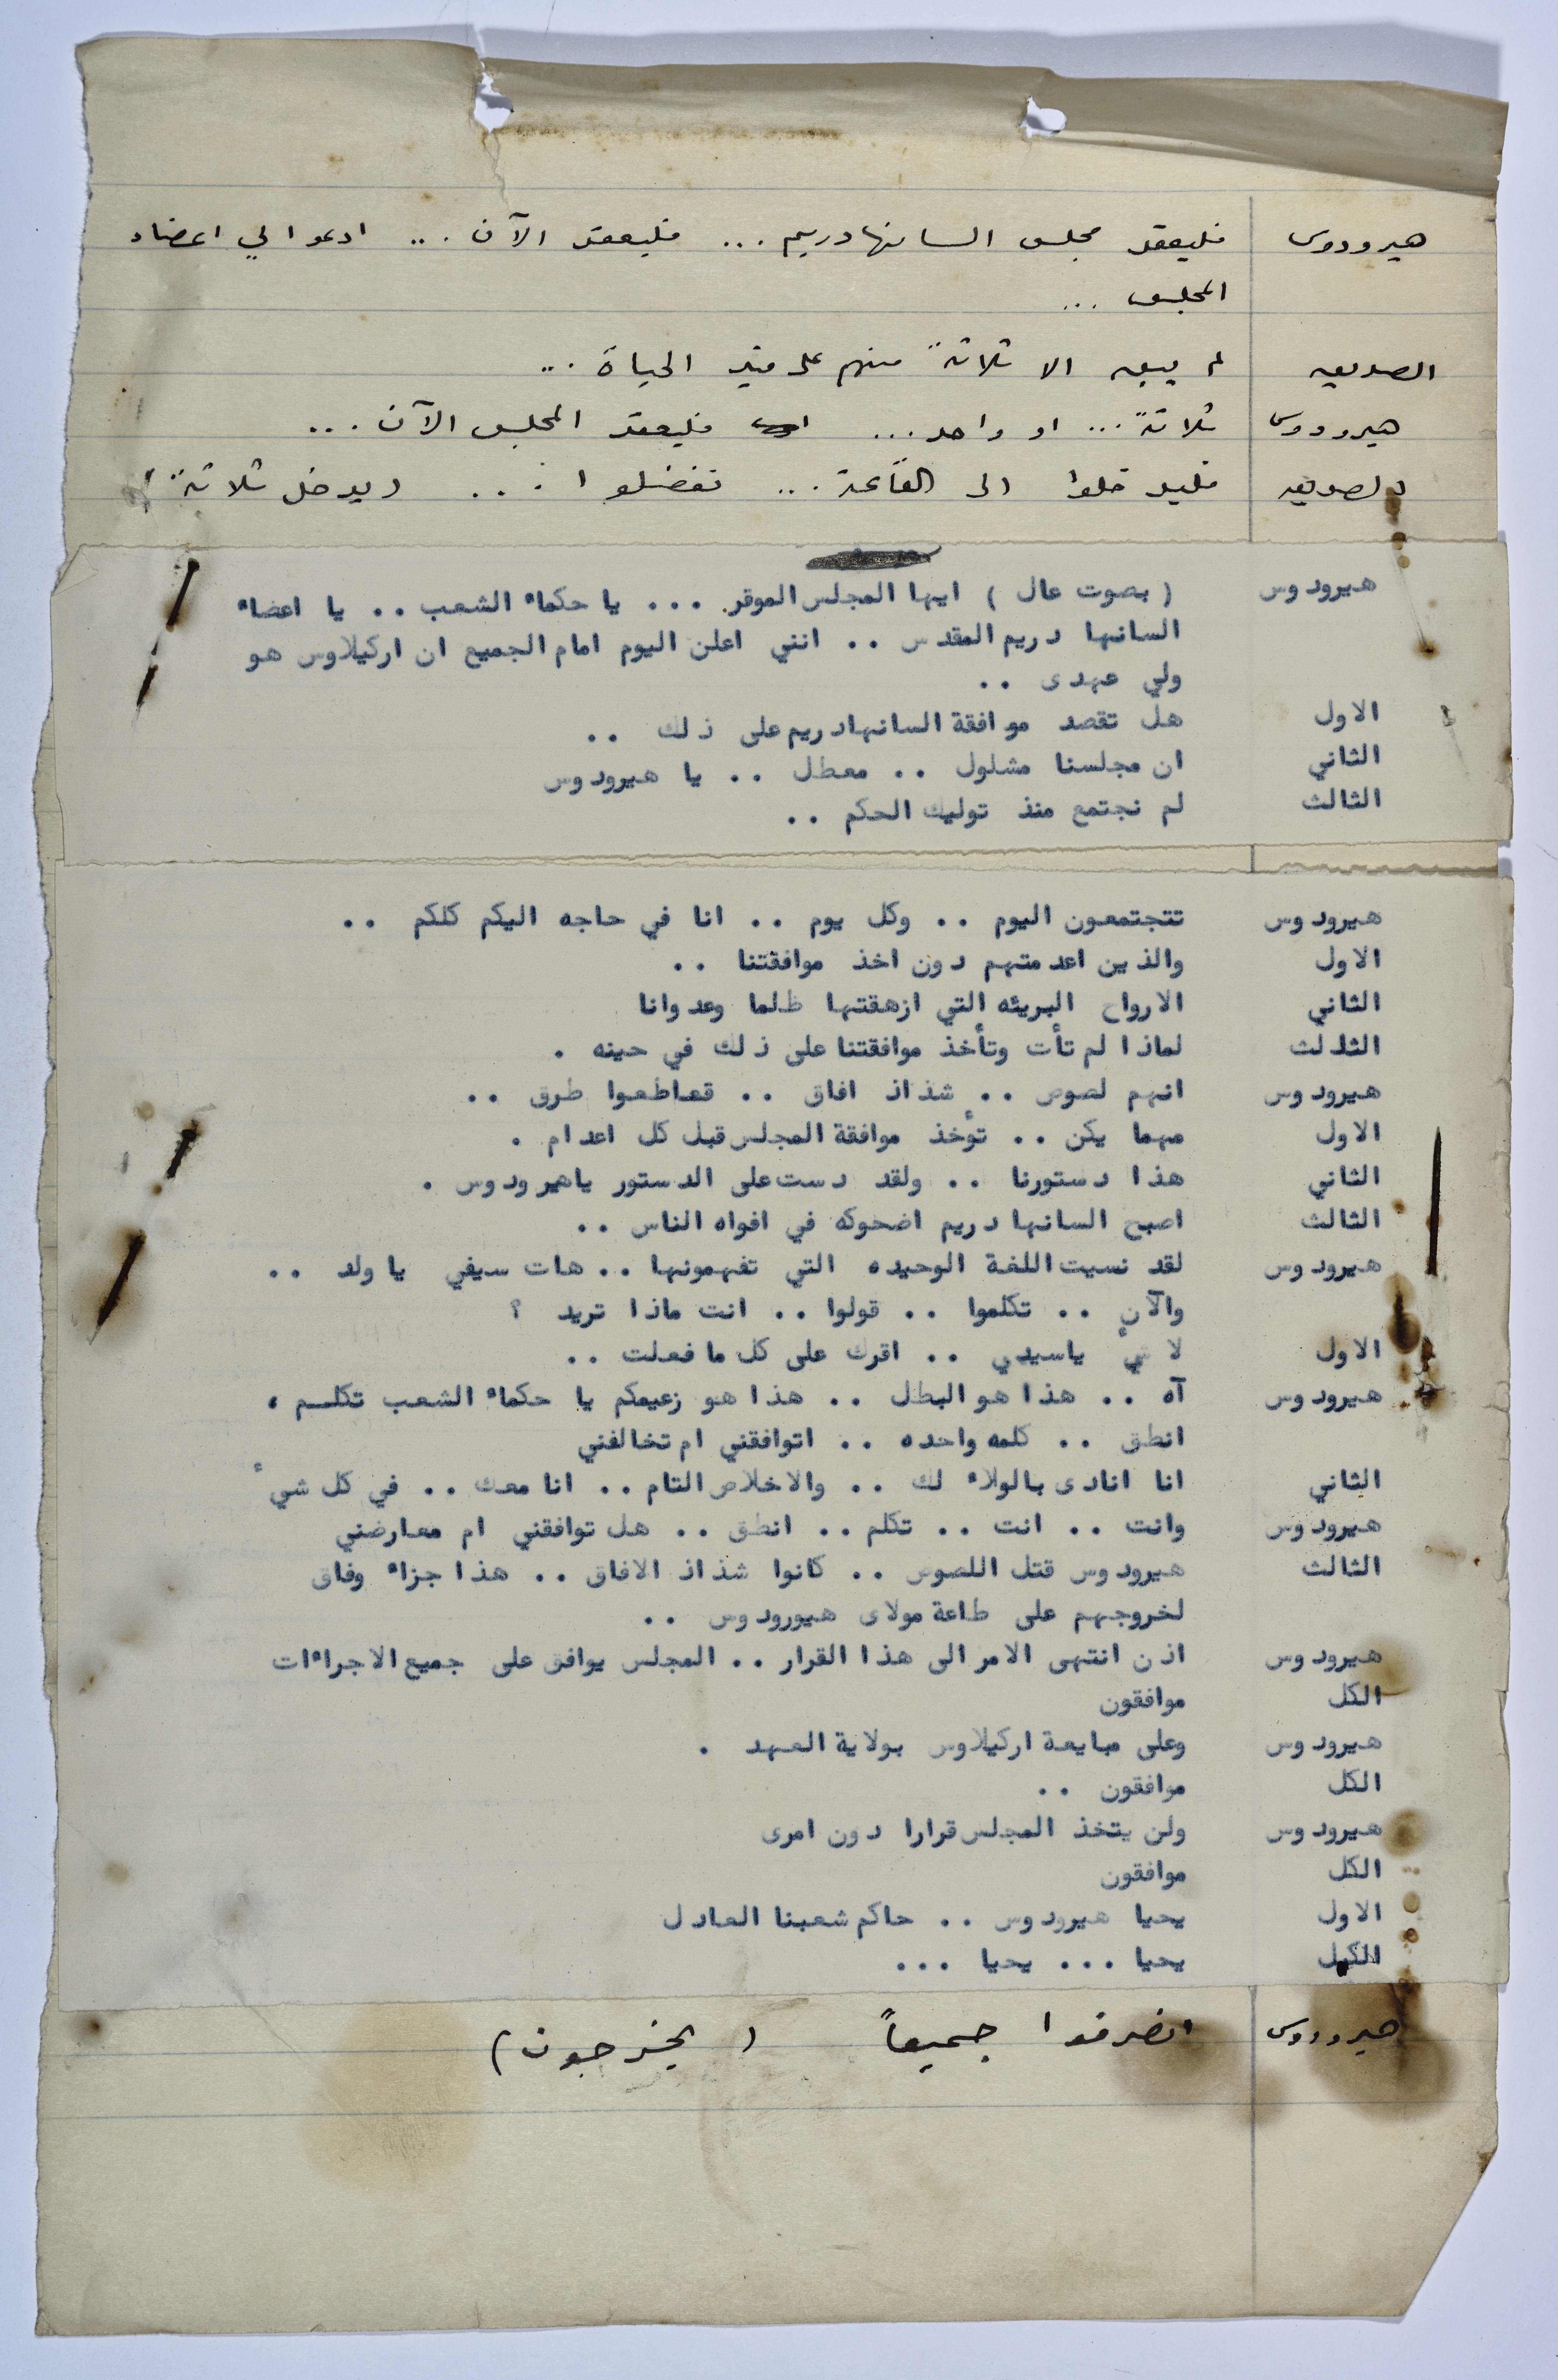 هيرودوس فليعقد مجلس السانهادريم ... فليعقد الآن ... ادعوا لي اعضاء
المجلس ...
الصديق لم يبق الا ثلاثة منهم على قيد الحياة ...
هيرودوس ثلاثة ... او واحد ... فليعقد المجلس الآن ...
الصديق فليدخلوا الى القاعة ... تفضلوا ... ( يدخل ثلاثة )
هيرودوس ( بصوت عال ) ايها المجلس الموقر ... يا حكماء الشعب .. يا اعضاء
السانهادريم المقدس .. انني اعلن اليوم امام الجميع ان اركيلاوس هو
ولي عهدى ..
الاول هل تقصد موافقة السانهادريم على ذلك ..
الثاني ان مجلسنا مشلول .. معطل .. يا هيرودوس
الثالث لم نجتمع منذ توليك الحكم ..
هيرودوس تتجتمعون اليوم .. وكل يوم .. انا في حاجه اليكم كلكم ..
الاول والذين اعدمتهم دون اخذ موافقتنا ..
الثاني الارواح البريئه التي ازهقتها ظلما وعدوانا
الثالث لماذا لم تأت وتأخذ موافقتنا على ذلك في حينه .
هيرودوس انهم لصوص .. شذاذ افاق .. قعاطعوا طرق ..
الاول مهما يكن .. تؤخذ موافقة المجلس قبل كل اعدام .
الثاني هذا دستورنا .. ولقد دست على الدستور ياهيرودوس .
الثالث اصبح السانهادريم اضحوكه في افواه الناس ..
هيرودوس لقد نسيت اللغة الوحيده التي تفهمونها .. هات سيفي يا ولد ..
والآن .. تكلموا .. قولوا .. انت ماذا تريد ؟
الاول لا شيء ياسيدي .. اقرك على كل ما فعلت ..
هيرودوس آه .. هذا هو البطل .. هذا هو زعيمكم يا حكماء الشعب تكلـم ،
انطق .. كلمه واحده .. اتوافقني ام تخالفني
الثاني انا انادى بالولاء لك .. والاخلاص التام .. انا معك .. في كل شيء
هيرودوس وانت .. انت .. تكلم .. انطق .. هل توافقني ام معارضني
الثالث هيرودوس قتل اللصوص .. كانوا شذاذ الافاق .. هذا جزاء وفاق
لخروجهم على طاعة مولاى هيورودوس ..
هيرودوس اذن انتهى الامر الى هذا القرار .. المجلس يوافق على جميع الاجراءات
الكل موافقون
هيرودوس وعلى مبايعة اركيلاوس بولاية العهد .
الكل موافقون ..
هيرودوس ولن يتخذ المجلس قرارا دون امرى
الكل موافقون
الاول يحيا هيرودوس .. حاكم شعبنا العادل
الكل يحيا ... يحيا ...
هيرودوس انصرفوا جميعاً ( يخرجون )